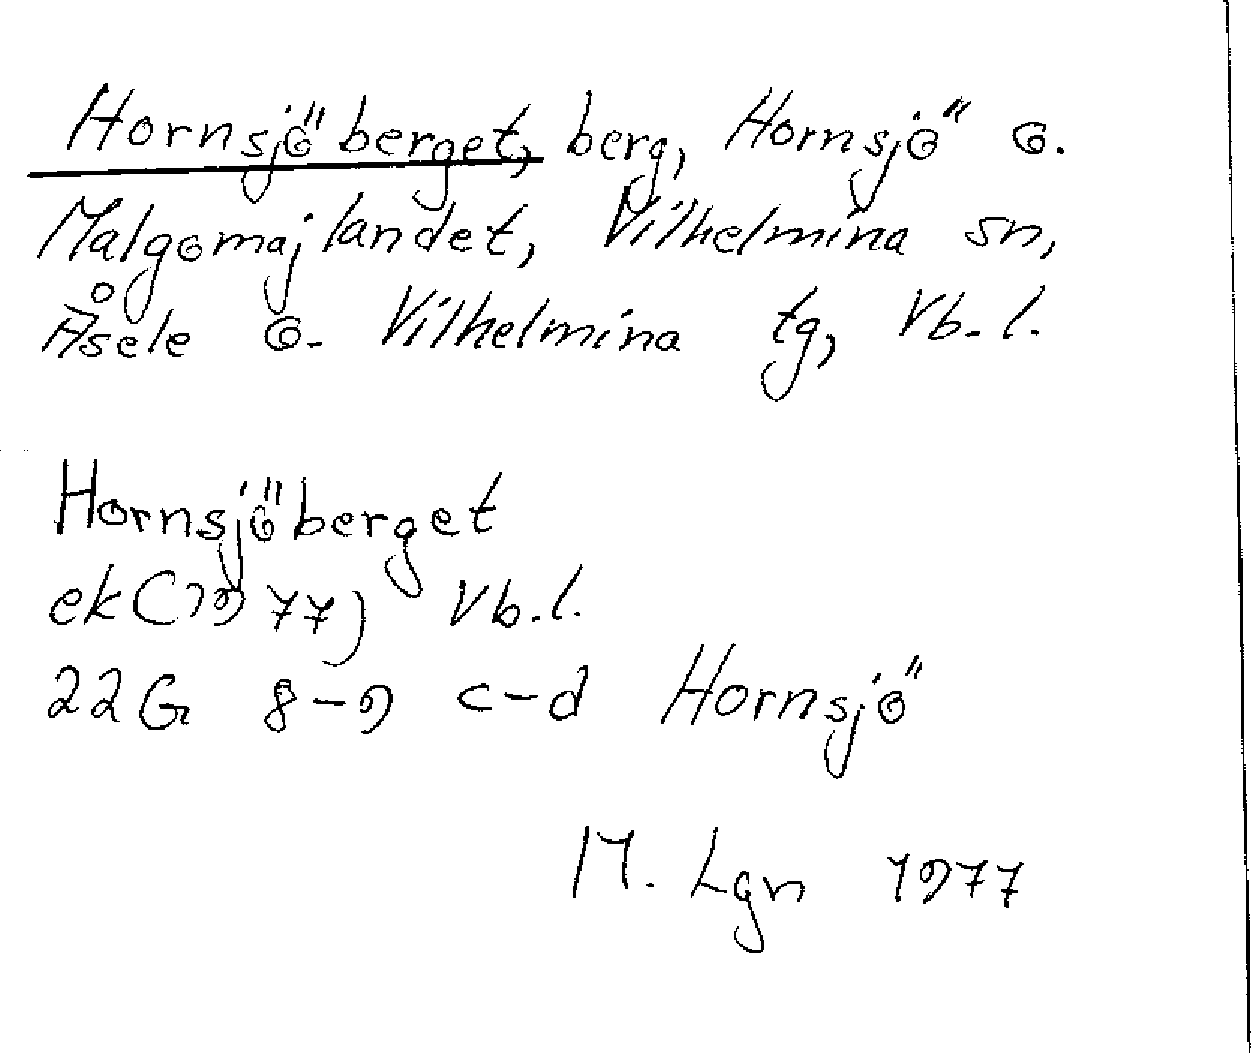 Hornsjöberget, berg, Hornsjö o.
Malgomajlandet, Vilhelmina sn,
Åsele o. Vilhelmina tg, Vb. l.
Hornsjöberget
ek (1977) Vb. l.
22G 8-9 c-d Hornsjö
M. Lgn 1977